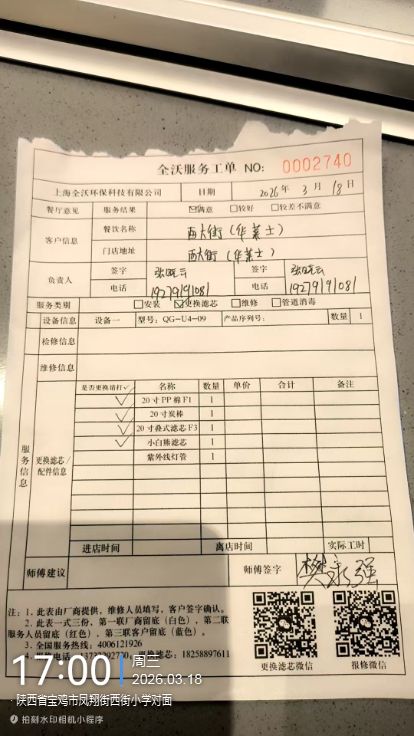 全沃服务工单 NO: 0002740
上海全沃环保科技有限公司 日期 2026年 3月 18日
餐厅意见 服务结果 ☑满意 □较好 □较差不满意
客户信息 餐饮名称 西大街(华莱士)
门店地址 西大街(华莱士)
负责人 签字 张晓云 签字 张晓云
电话 19279191081 电话 19279191081
服务类别 □安装 ☑更换滤芯 □维修 □管道消毒
设备信息 设备一 型号: QG-U4-09 产品序列号: 数量 1
检修信息
维修信息
服务信息 更换滤芯/配件信息
是否更换请打✓ 名称 数量 单价 合计 备注
✓ 20寸PP棉F1 1
✓ 20寸炭棒 1
✓ 20寸叠式滤芯F3 1
✓ 小白熊滤芯 1
紫外线灯管 1
进店时间 离店时间 实际工时
师傅建议 师傅签字 樊永强
注: 1. 此表由厂商提供, 维修人员填写, 客户签字确认。
2. 此表一式三份, 第一联厂商留底(白色), 第二联
服务人员留底(红色), 第三联客户留底(蓝色)。
3. 全国服务热线: 4006121926
18258897611
更换滤芯微信 报修微信
17:00 周三
2026.03.18
陕西省宝鸡市凤翔街西街小学对面
拍刻水印相机小程序